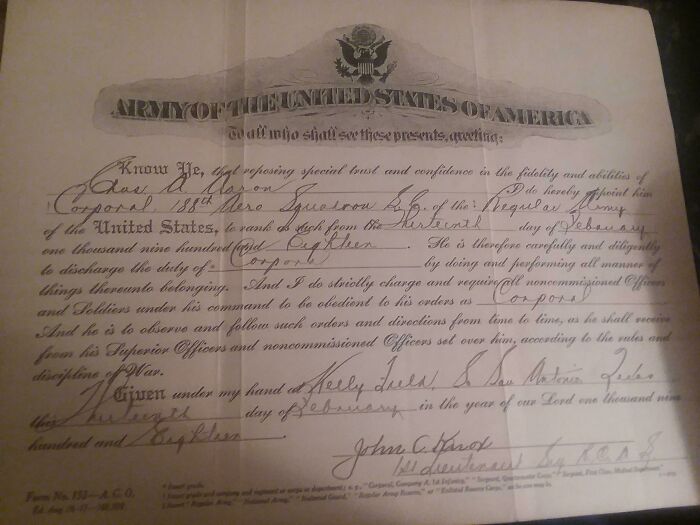 ARMY OF THE UNITED STATES OF AMERICA
To all who shall see these presents, greeting:
Know Ye, that reposing special trust and confidence in the fidelity and abilities of
Chas A. Aaron I do hereby appoint him
Corporal, 188th Aero Squadron S.C. of the Regular Army
of the United States, to rank as such from the thirteenth day of February
one thousand nine hundred and Eighteen. He is therefore carefully and diligently
to discharge the duty of Corporal by doing and performing all manner of
things thereunto belonging. And I do strictly charge and require all noncommissioned Officers
and Soldiers under his command to be obedient to his orders as Corporal
And he is to observe and follow such orders and directions from time to time, as he shall receive
from his Superior Officers and noncommissioned Officers set over him, according to the rules and
discipline of War.
Given under my hand at Kelly Field, So San Antonio Texas
this thirteenth day of February in the year of our Lord one thousand nine
hundred and Eighteen.
John C. Knox
1st Lieutenant
Form No. 153—A. G. O.
* Insert grade.